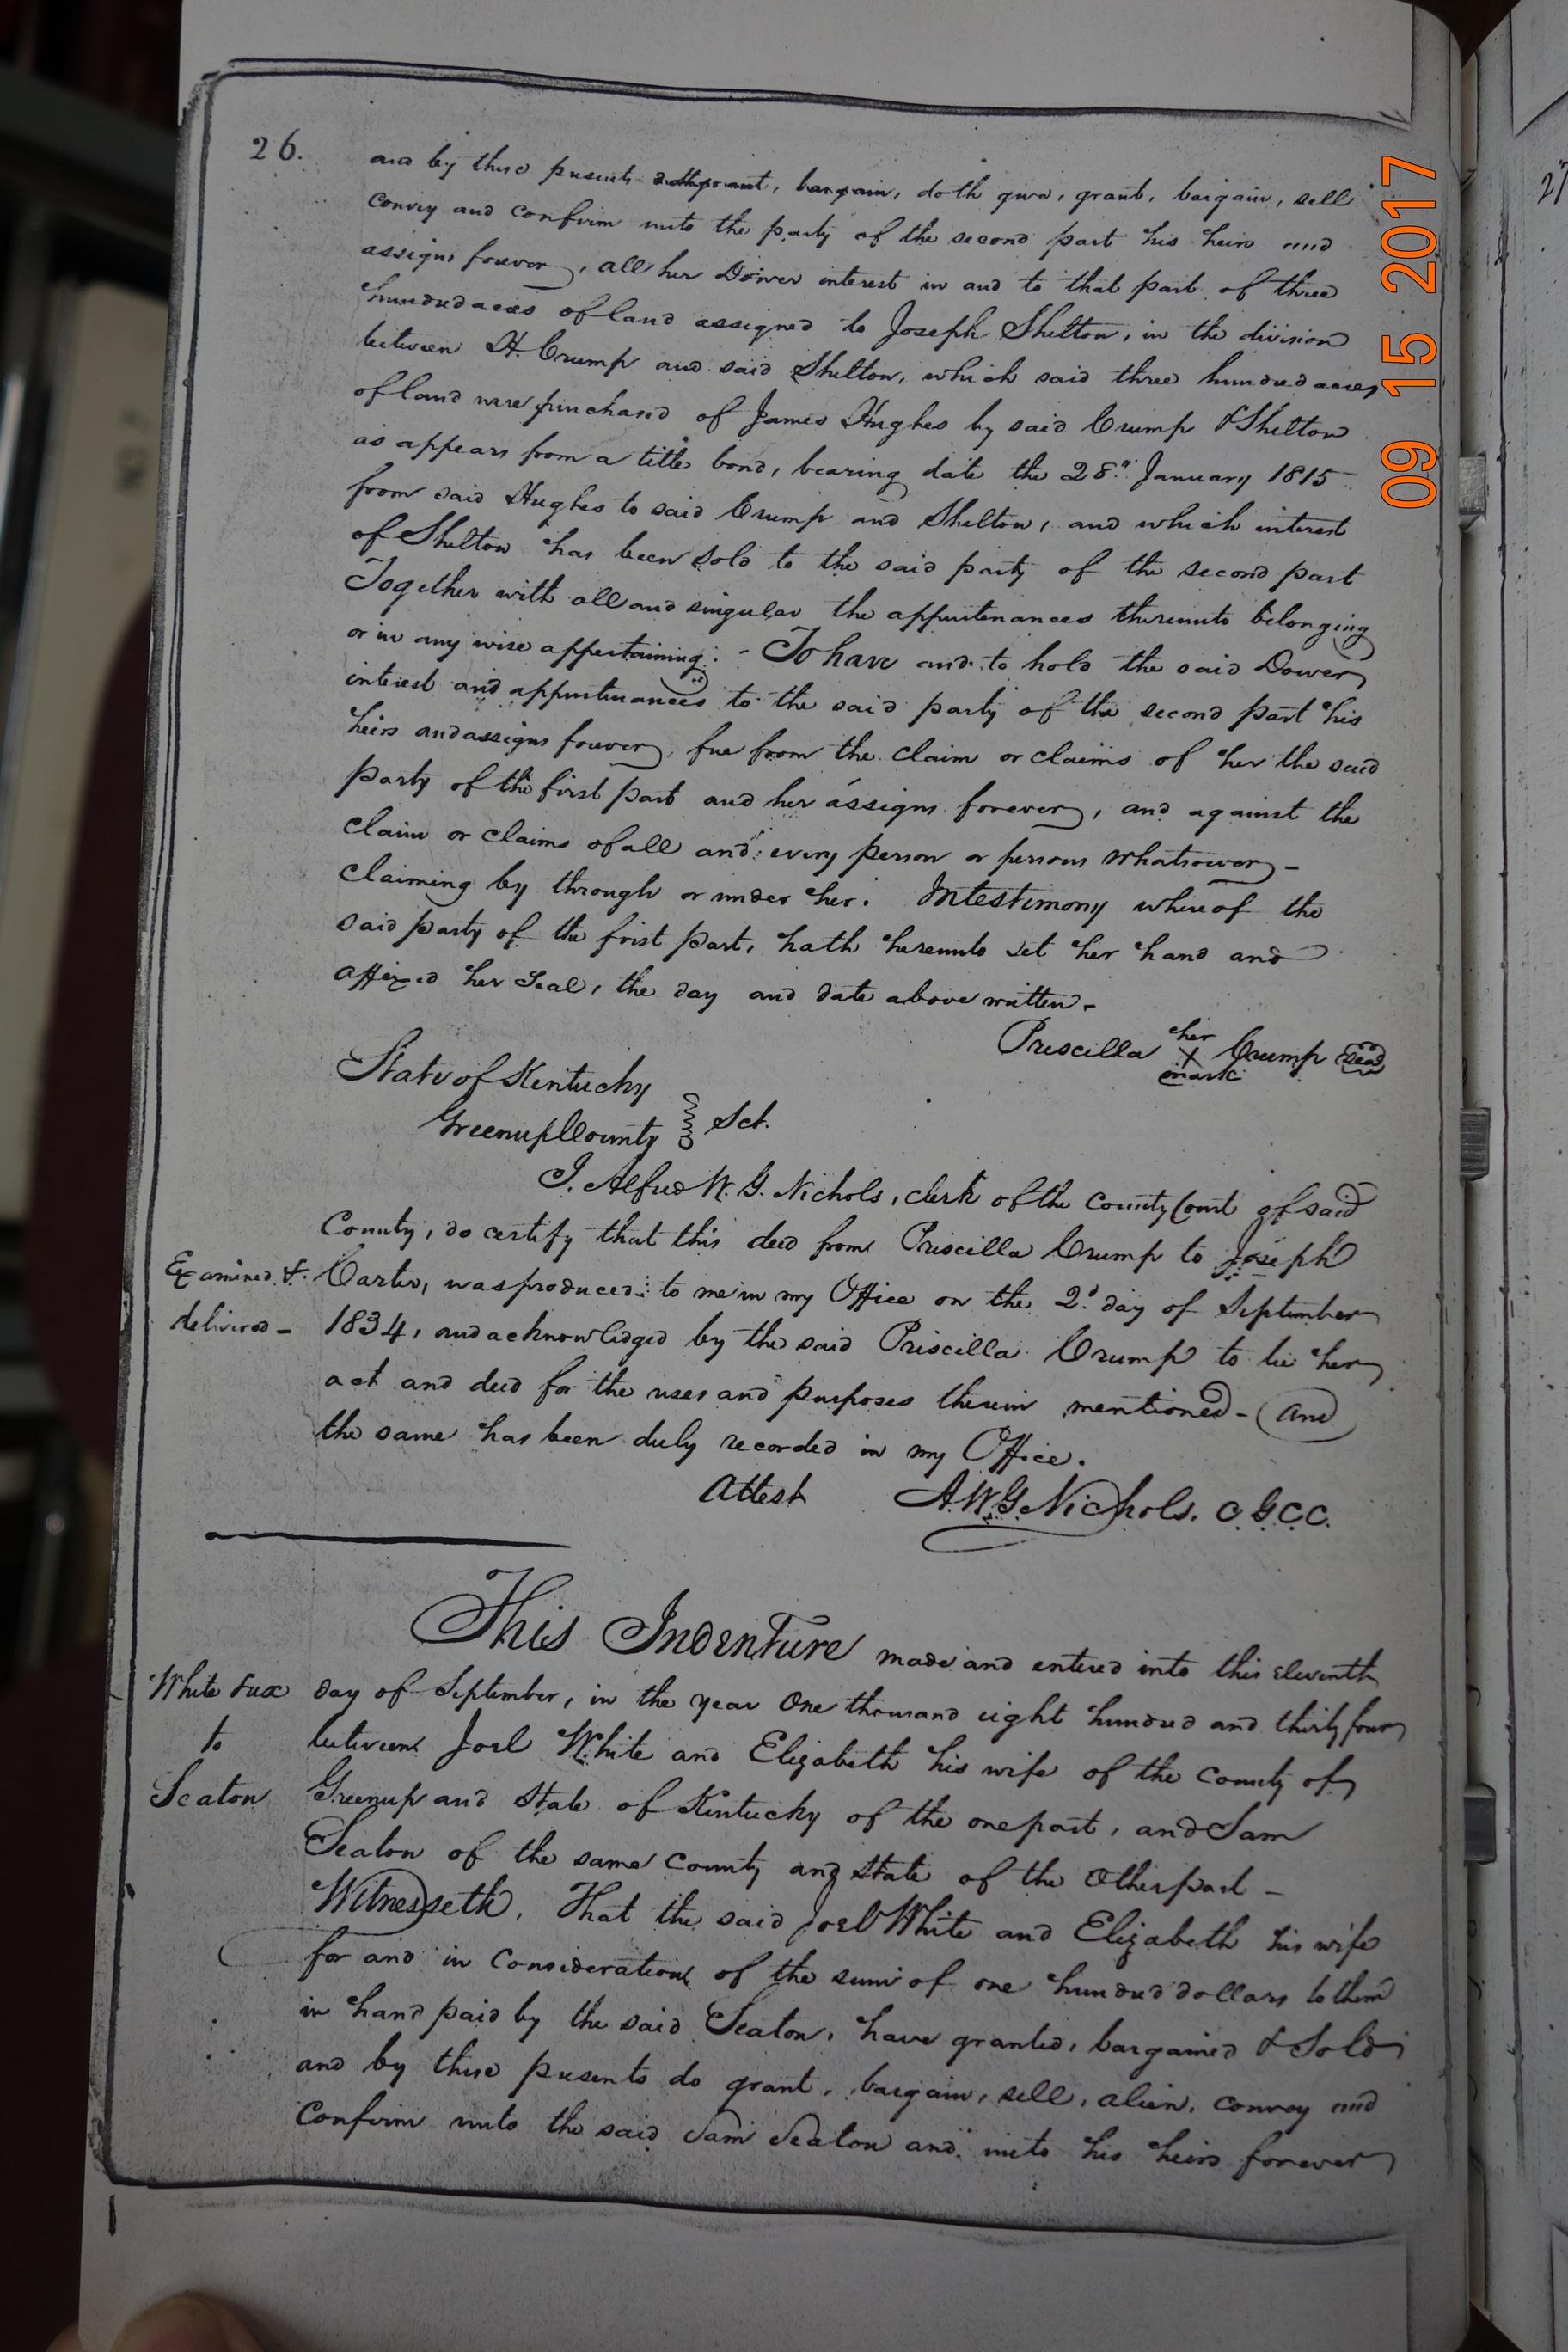 26.
and by these presents doth grant, bargain, doth give, grant, bargain, sell
convey and confirm unto the party of the second part his heirs and
assigns forever, all her Dower interest in and to that part of three
hundred acres of land assigned to Joseph Shelton, in the division
between H. Crump and said Shelton, which said three hundred acres
of land were purchased of James Hughes by said Crump & Shelton
as appears from a title bond, bearing date the 28.th January 1815
from said Hughes to said Crump and Shelton, and which interest
of Shelton has been sold to the said party of the second part
Together with all and singular the appurtenances thereunto belonging
or in any wise appertaining: - To have and to hold the said Dower
interest and appurtenances to the said party of the second part his
heirs and assigns forever, free from the claim or claims of her the said
party of the first part and her assigns forever, and against the
claim or claims of all and every person or persons whatsoever -
claiming by through or under her. In testimony whereof the
said party of the first part, hath hereunto set her hand and
affixed her Seal, the day and date above written.
Priscilla her X mark Crump Seal
State of Kentucky
Greenup County Sct.
I. Alfred W. G. Nichols, clerk of the County Court of said
County, do certify that this deed from Priscilla Crump to Joseph
Examined &
delivered -
Carter, was produced to me in my Office on the 2d day of September
1834, and acknowledged by the said Priscilla Crump to be her
act and deed for the uses and purposes therein mentioned - and
the same has been duly recorded in my Office.
Attest A.W.G. Nichols. C.G.C.C.
This Indenture made and entered into this eleventh
White & ux
to
Seaton
day of September, in the year One thousand eight hundred and thirty four
between Joel White and Elizabeth his wife of the County of
Greenup and State of Kentucky of the one part, and Sam
Seaton of the same County and State of the Other part -
Witnesseth, That the said Joel White and Elizabeth his wife
for and in Consideration of the sum of one hundred dollars to them
in hand paid by the said Seaton, have granted, bargained & Sold
and by these presents do grant, bargain, sell, alien, convey and
Confirm unto the said Sam Seaton and unto his heirs forever
09 15 2017
27